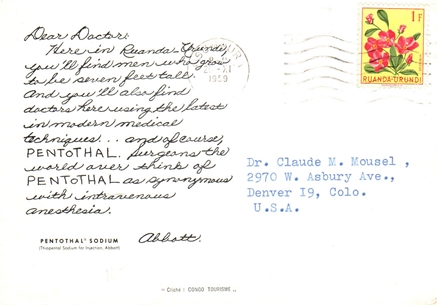 Dear Doctor:
Here in Ruanda-Urundi,
you'll find men who grow
to be seven feet tall.
And you'll also find
doctors here using the latest
in modern medical
techniques... and of course,
PENTOTHAL. Surgeons the
world over think of
PENTOTHAL as synonymous
with intravenous
anesthesia.
Abbott.
PENTOTHAL® SODIUM
(Thiopental Sodium for Injection, Abbott)
1959
1F
RUANDA-URUNDI
Dr. Claude M. Mousel ,
2970 W. Asbury Ave.,
Denver I9, Colo.
U.S.A.
— Cliché : CONGO TOURISME ..